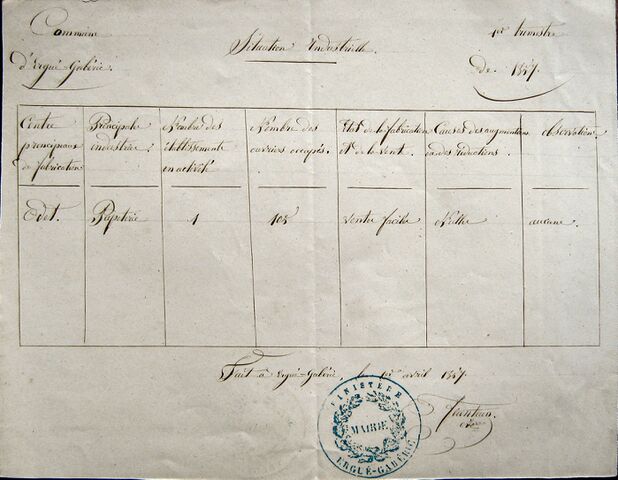 Commune
d'Ergué-Gabéric.
Situation Industrielle.
1er trimestre
de 1857.
Centre
principaux
de fabrication
Principale
industrie.
Nombre des
établissements
en activité
Nombre des
ouvriers occupés.
Etat de la fabrication
et de la vente.
Causes des augmentations
ou des réductions.
observations
Odet.
Papeterie
1
105
vente facile
Nulle
aucune.
Fait à Ergué-Gabéric, le 1er avril 1857.
FINISTERE
MAIRIE
ERGUÉ-GABERIC.